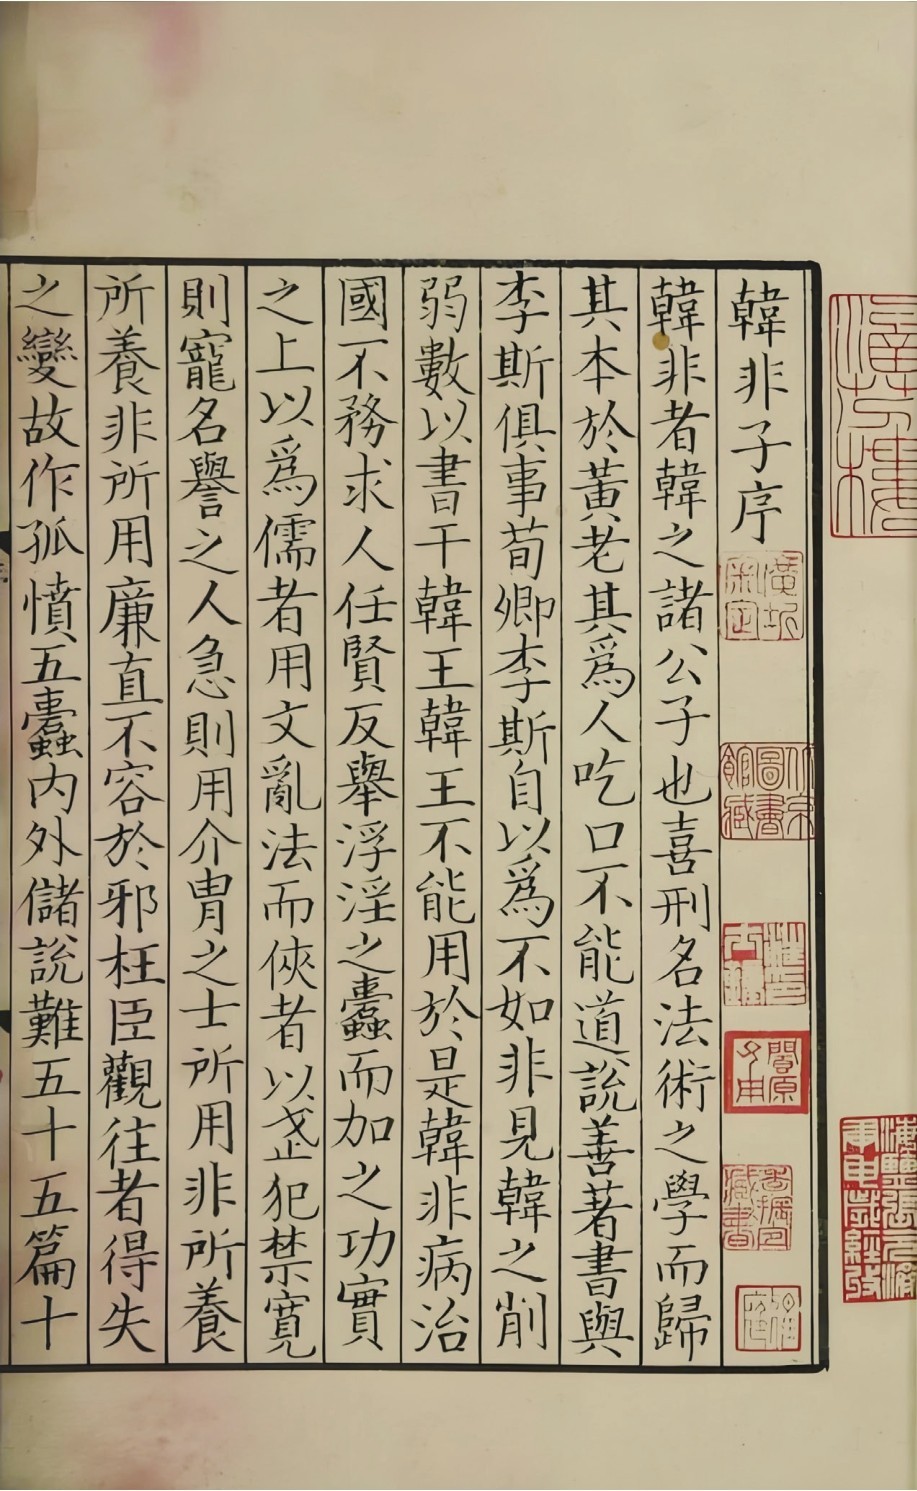 韓非子序
韓非者韓之諸公子也喜刑名法術之學而歸
其本於黃老其爲人吃口不能道說善著書與
李斯俱事荀卿李斯自以爲不如非見韓之削
弱數以書干韓王韓王不能用於是韓非病治
國不務求人任賢反舉浮淫之蠹而加之功實
之上以爲儒者用文亂法而俠者以武犯禁寬
則寵名譽之人急則用介胄之士所用非所養
所養非所用廉直不容於邪枉臣觀往者得失
之變故作孤憤五蠹内外儲說難五十五篇十
涵芬樓
海鹽張元濟庚申歲經收